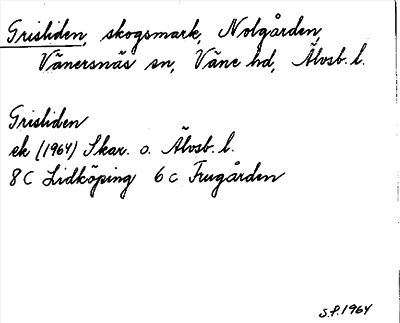 Grisliden, skogsmark, Nolgården,
Vänersnäs sn, Väne hd, Älvsb. l.
Grisliden
ek (1964) Skar. o. Älvsb. l.
8C Lidköping 6c Frugården
S.P. 1964